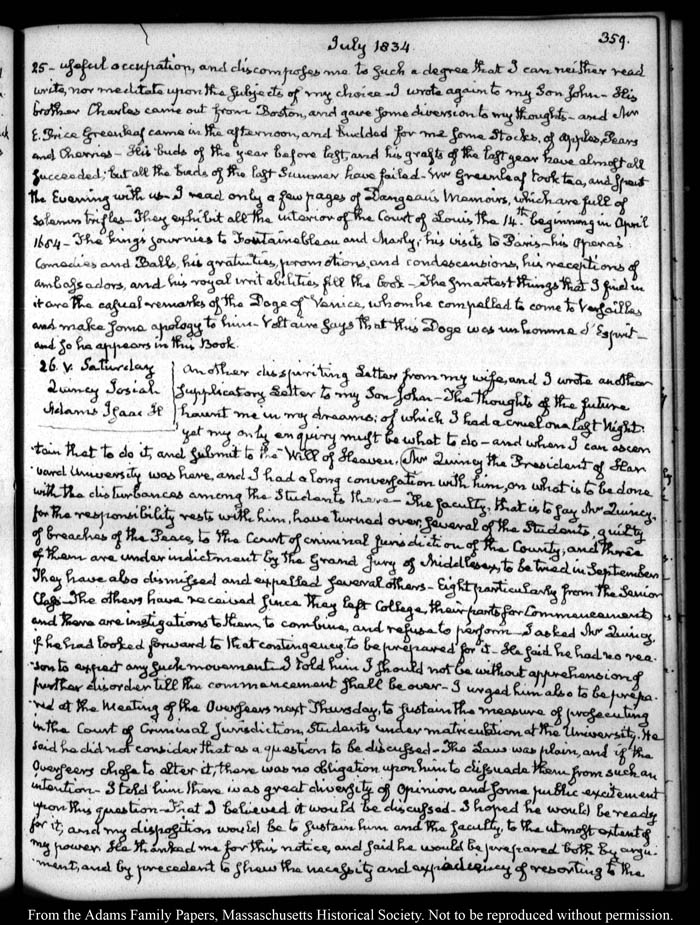 July 1834.
359.
25 - useful occupation, and discomposes me to such a degree that I can neither read
write, nor meditate upon the subjects of my choice - I wrote again to my Son John - His
brother Charles came out from Boston, and gave some diversion to my thoughts - and Mr
E. Price Greenleaf came in the afternoon, and budded for me some Stocks, of Apples, Pears
and Cherries - His buds of the year before last, and his grafts of the last year have almost all
succeeded; but all the buds of the last Summer have failed - Mr Greenleaf took tea, and spent
the Evening with us - I read only a few pages of Dangeau's Memoirs, which are full of
solemn trifles - They exhibit all the interior of the Court of Louis the 14th beginning in April
1684 - The king's journies to Fontainebleau and Marly; his visits to Paris - his Operas
Comedies and Balls, his gratuities, promotions, and condescensions, his receptions of
ambassadors, and his royal fill the book - The smartest things that I find in
it are the casual remarks of the Doge of Venice, whom he compelled to come to Versailles
and make some apology to him - Voltaire says that this Doge was un homme d'Esprit -
and so he appears in this Book.
26. V. Saturday
Quincy Josiah
Adams Isaac H
Another dispiriting Letter from my wife, and I wrote another
supplicatory Letter to my Son John - The thoughts of the future
haunt me in my dreams; of which I had a cruel one last Night.
yet my only enquiry must be what to do - and when I can ascer
tain that to do it, and submit to the Will of Heaven. Mr Quincy the President of Har
vard University was here, and I had a long conversation with him, on what is to be done
with the disturbances among the Students there - The faculty, that is to say Mr Quincy,
for the responsibility rests with him, have turned over several of the Students, guilty
of breaches of the Peace, to the Court of criminal Jurisdiction of the County, and three
of them are under indictment by the Grand Jury of Middlesex, to be tried in September
They have also dismissed and expelled several others - Eight particularly from the Senior
Class - The others have received since they left College, their parts for Commencement,
and there are instigations to them to combine, and refuse to perform - I asked Mr Quincy,
if he had looked forward to that contingency, to be prepared for it - He said he had no rea
son to expect any such movement - I told him I should not be without apprehension of
further disorder till the commencement shall be over - I urged him also to be prepa
red at the Meeting of the Overseers next Thursday, to sustain the measure of prosecuting
in the Court of Criminal Jurisdiction, Students under matriculation at the University. He
said he did not consider that as a question to be discussed - The Law was plain, and if the
Overseers chose to alter it, there was no obligation upon him to dissuade them from such an
intention - I told him there was great diversity of Opinion and some public excitement
upon this question - That I believed it would be discussed - I hoped he would be ready
for it, and my disposition would be to sustain him and the faculty, to the utmost extent of
my power. He thanked me for this notice, and said he would be prepared both by argu
ment, and by precedent to shew the necessity and expediency of resorting to the
From the Adams Family Papers, Massachusetts Historical Society. Not to be reproduced without permission.